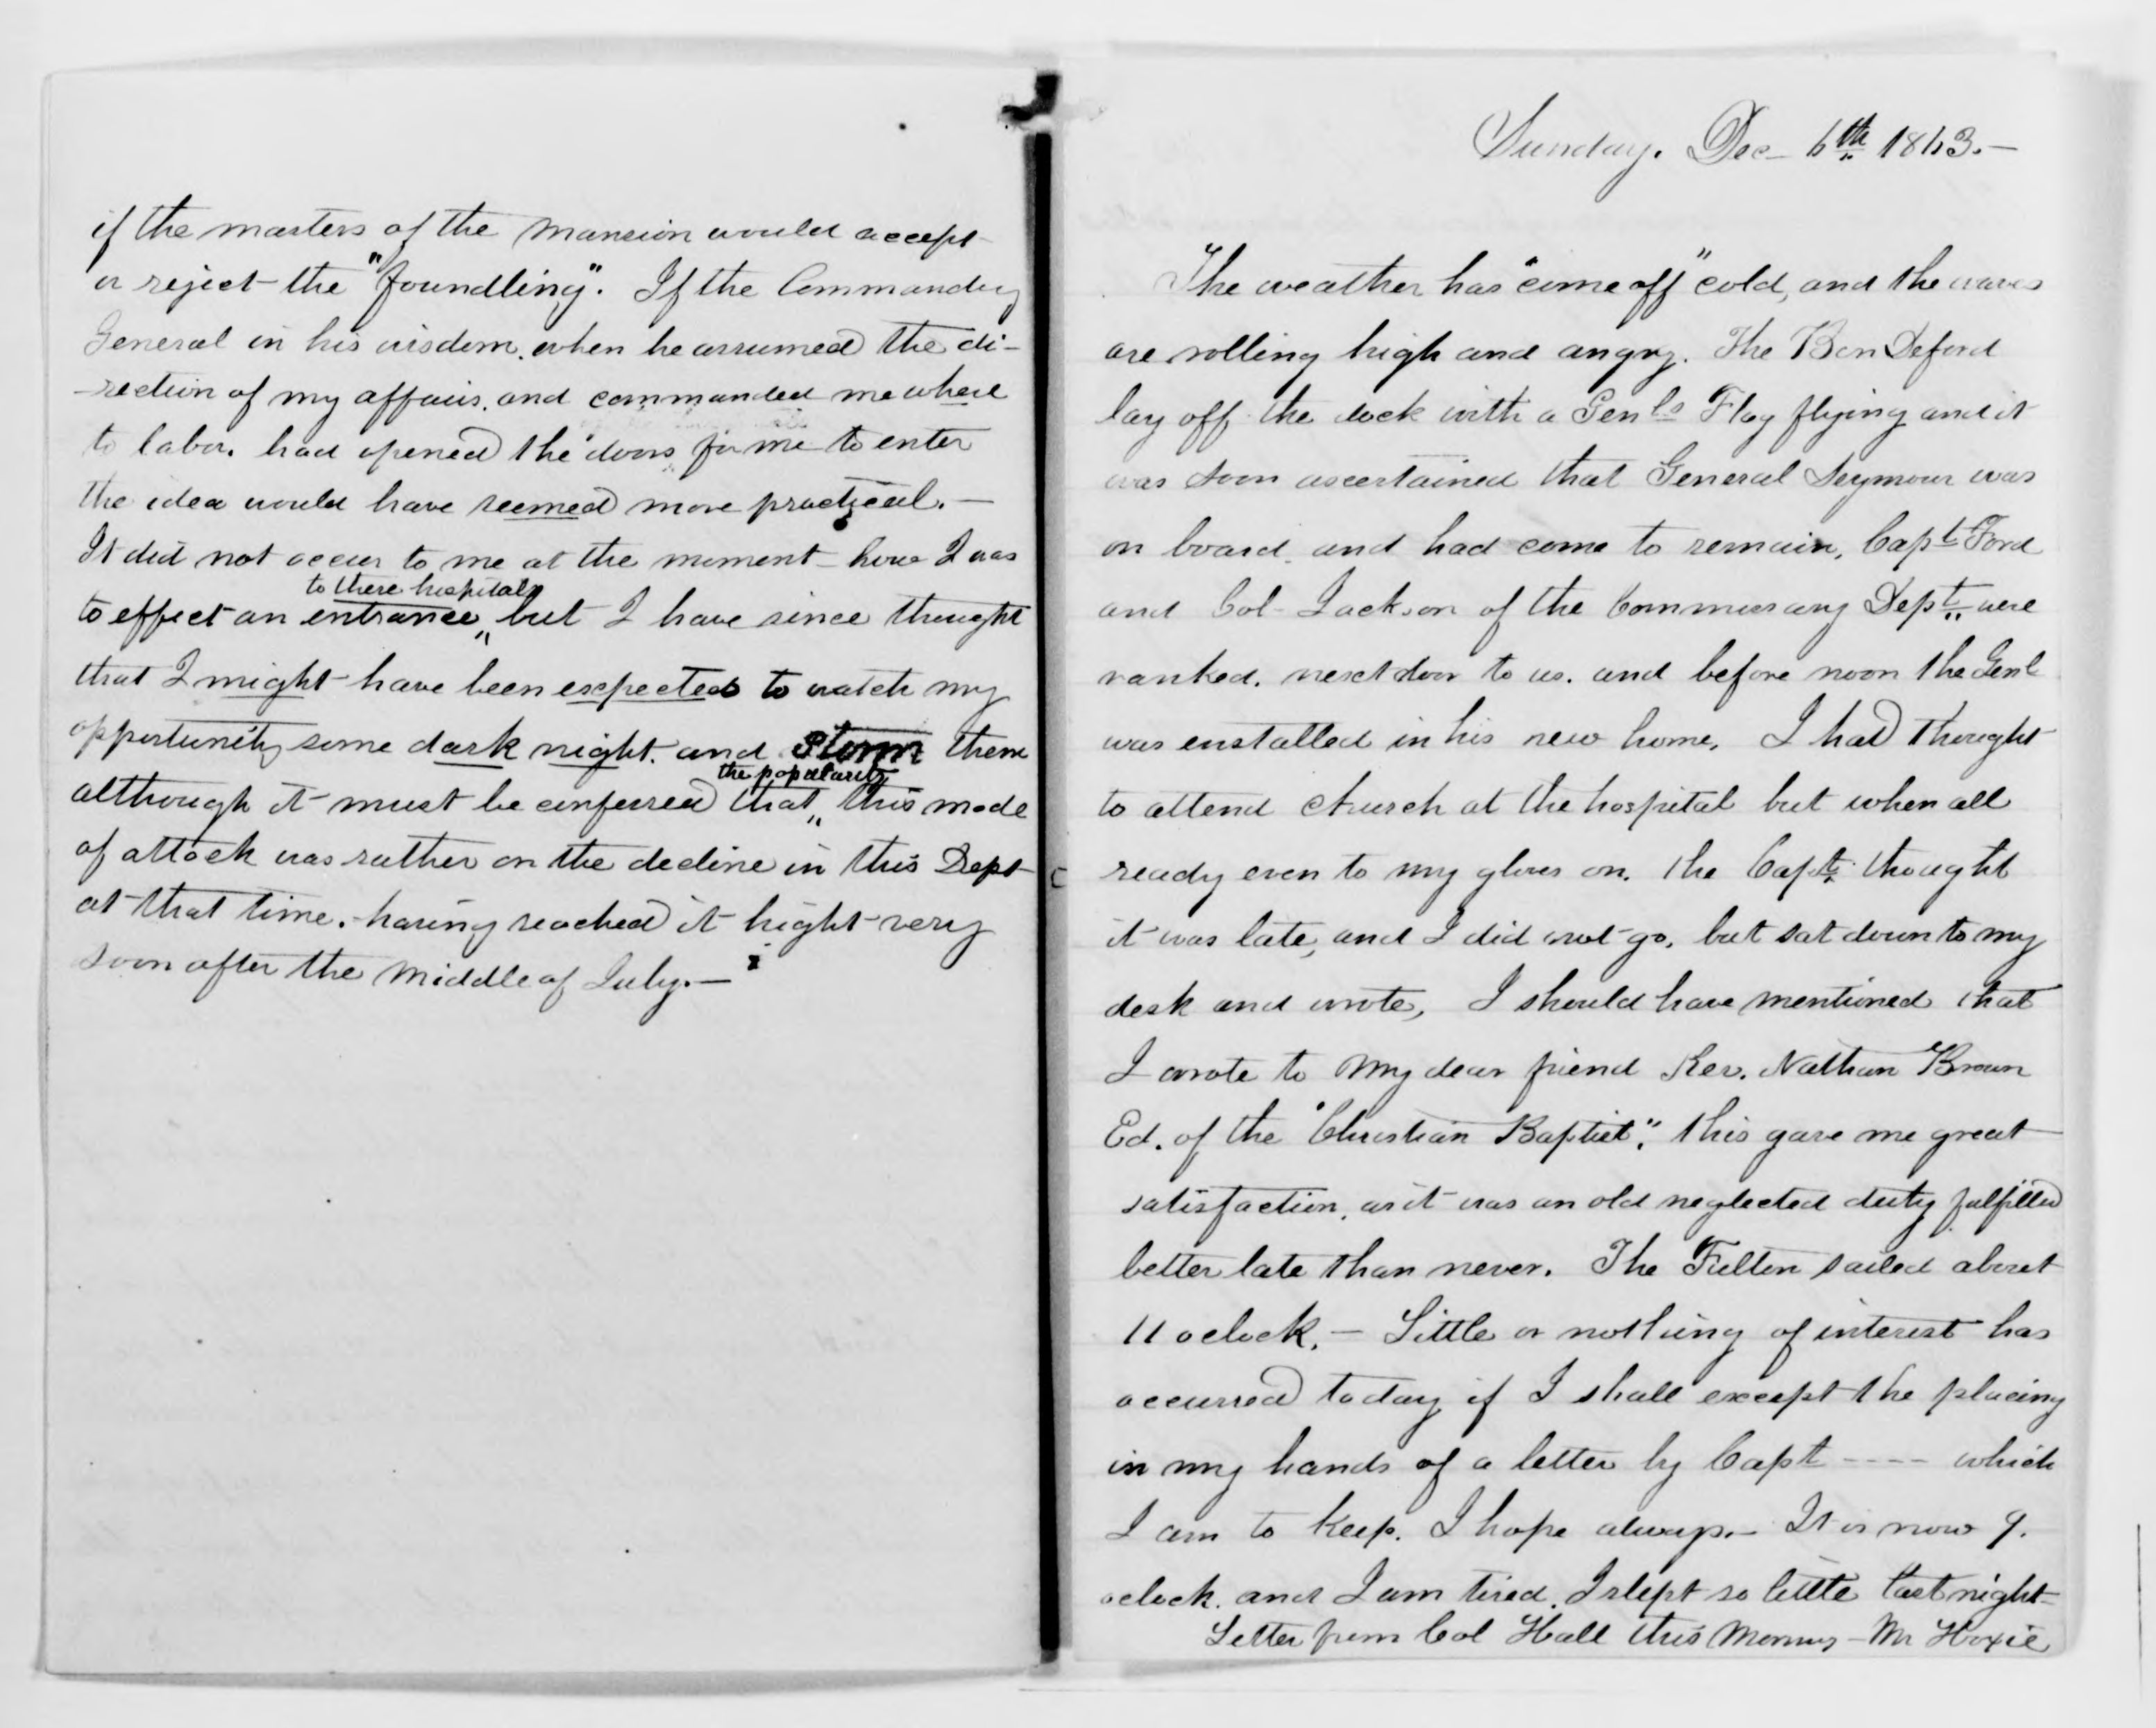 if the masters of the mansion would accept
or reject the "foundling". If the Commanding
General in his wisdom. when he assumed the di-
-rection of my affairs. and commanded me where
to labor. had opened the doors for me to enter
the idea would have seemed more practical. —
It did not occur to me at the moment how I was
to these hospitals
to effect an entrance, but I have since thought
that I might have been expected to watch my
opportunity some dark night. and storm them
the popularity
although it must be confessed that this mode
of attack was rather on the decline in this Dept
at that time. having reached it hight very
soon after the middle of July. —
Sunday. Dec 6th 1863. —
The weather has "come off" cold, and the waves
are rolling high and angry. The Ben Deford
lay off the dock with a Genls Flag flying and it
was soon ascertained that General Seymour was
on board. and had come to remain, Capt Ford
and Col Jackson of the Commissary Dept. were
ranked. next door to us. and before noon the Genl
was enstalled in his new home, I had thought
to attend church at the hospital but when all
ready even to my gloves on. the Capt. thought
it was late, and I did not go. but sat down to my
desk and wrote, I should have mentioned that
I wrote to my dear friend Rev. Nathan Brown
Ed. of the "Christian Baptist". this gave me great
satisfaction, as it was an old neglected duty fulfilled
better late than never. The Fulton sailed about
11 oclock. — Little or nothing of interest has
occurred today if I shall except the placing
in my hands of a letter by Capt ---- which
I am to keep. I hope always. — It is now 9.
oclock. and I am tired. I slept so little last night —
Letter from Col Hall this morning — Mr Hoxie